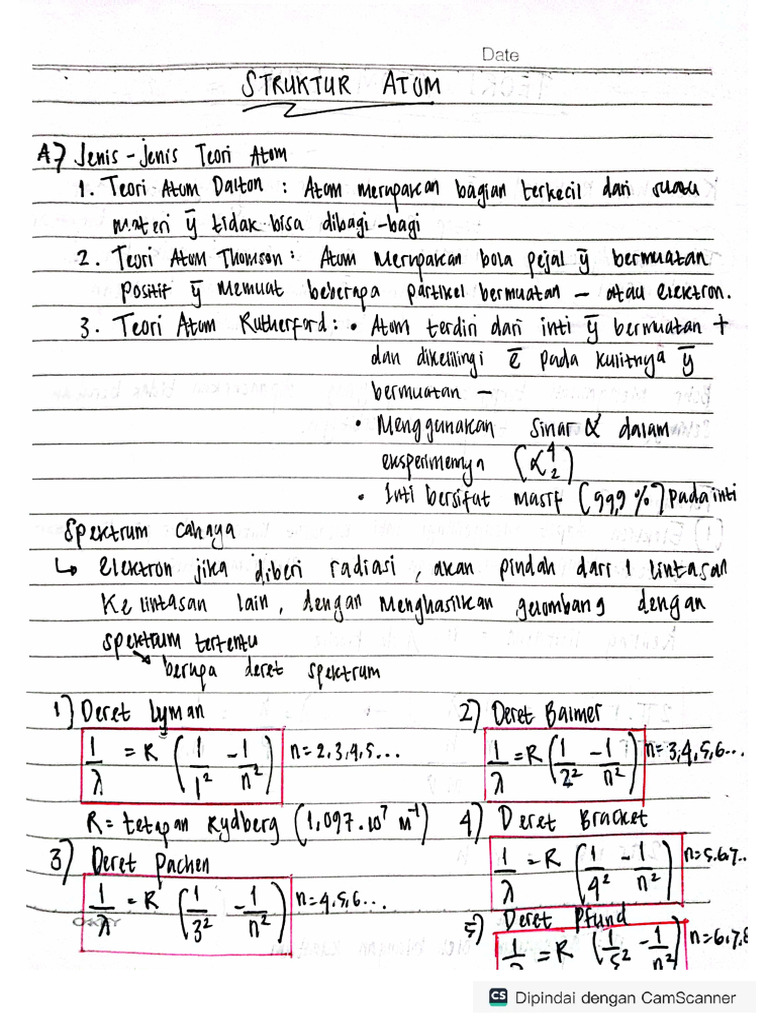 Date
STRUKTUR ATOM
A) Jenis-jenis Teori Atom
1. Teori Atom Dalton : Atom merupakan bagian terkecil dari suatu
materi ȳ tidak bisa dibagi-bagi
2. Teori Atom Thomson : Atom merupakan bola pejal ȳ bermuatan
positif ȳ memuat beberapa partikel bermuatan – atau elektron.
3. Teori Atom Rutherford : • Atom terdiri dari inti ȳ bermuatan +
dan dikelilingi ē pada kulitnya ȳ
bermuatan –
• Menggunakan sinar α dalam
eksperimennya (α⁴₂)
• Inti bersifat masif (99,9 %) pada inti
Spektrum cahaya
↳ elektron jika diberi radiasi, akan pindah dari 1 lintasan
ke lintasan lain, dengan menghasilkan gelombang dengan
spektrum tertentu
↘ berupa deret spektrum
1) Deret Lyman
1/λ = R (1/1² - 1/n²) n=2,3,4,5...
R = tetapan Rydberg (1,097.10⁷ m⁻¹)
2) Deret Balmer
1/λ = R (1/2² - 1/n²) n=3,4,5,6...
3) Deret Pachen
1/λ = R (1/3² - 1/n²) n=4,5,6...
4) Deret Bracket
1/λ = R (1/4² - 1/n²) n=5,6,7..
5) Deret Pfund
1/λ = R (1/5² - 1/n²) n=6,7,8
CS Dipindai dengan CamScanner